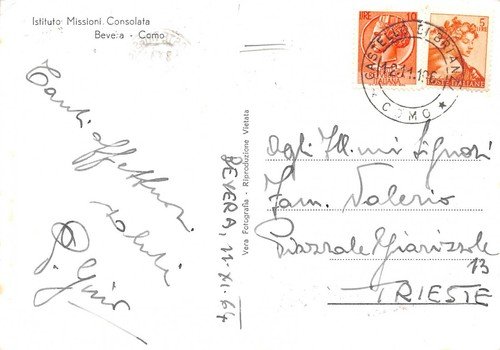 Istituto Missioni Consolata
Bevera - Como
Tanti affettuosi
saluti
P. Gino
Vera Fotografia - Riproduzione Vietata
BEVERA, 11-XI-64
LIRE 10
ITALIANA
5 LIRE
POSTE ITALIANE
CASTELLO DI BRIANZA
12.11.196
COMO
Agli Ill.mi Signori
Fam. Valerio
Piazzale Giarizzole
13
TRIESTE